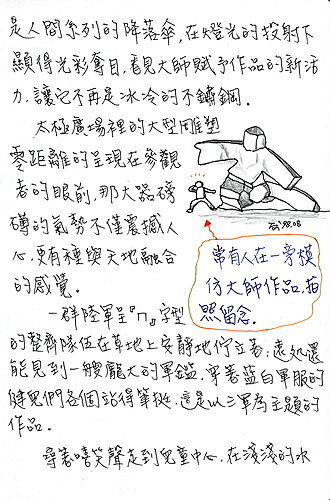 是人間系列的降落傘,在燈光的投射下
顯得光彩奪目,看見大師賦予作品的新活
力,讓它不再是冰冷的不鏽鋼.
太極廣場裡的大型雕塑
零距離的呈現在參觀
者的眼前,那大器磅
礴的氣勢不僅震撼人
心,更有種與天地融合
的感覺.
08
常有人在一旁模
仿大師作品,拍
照留念.
一群陸軍呈『ㄇ』字型
的整齊隊伍在草地上安靜地佇立著;遠處還
能見到一艘龐大的軍艦,穿著藍白軍服的
健兒們各個站得筆挺,這是以三軍為主題的
作品.
尋著嘻笑聲走到兒童中心,在淺淺的水